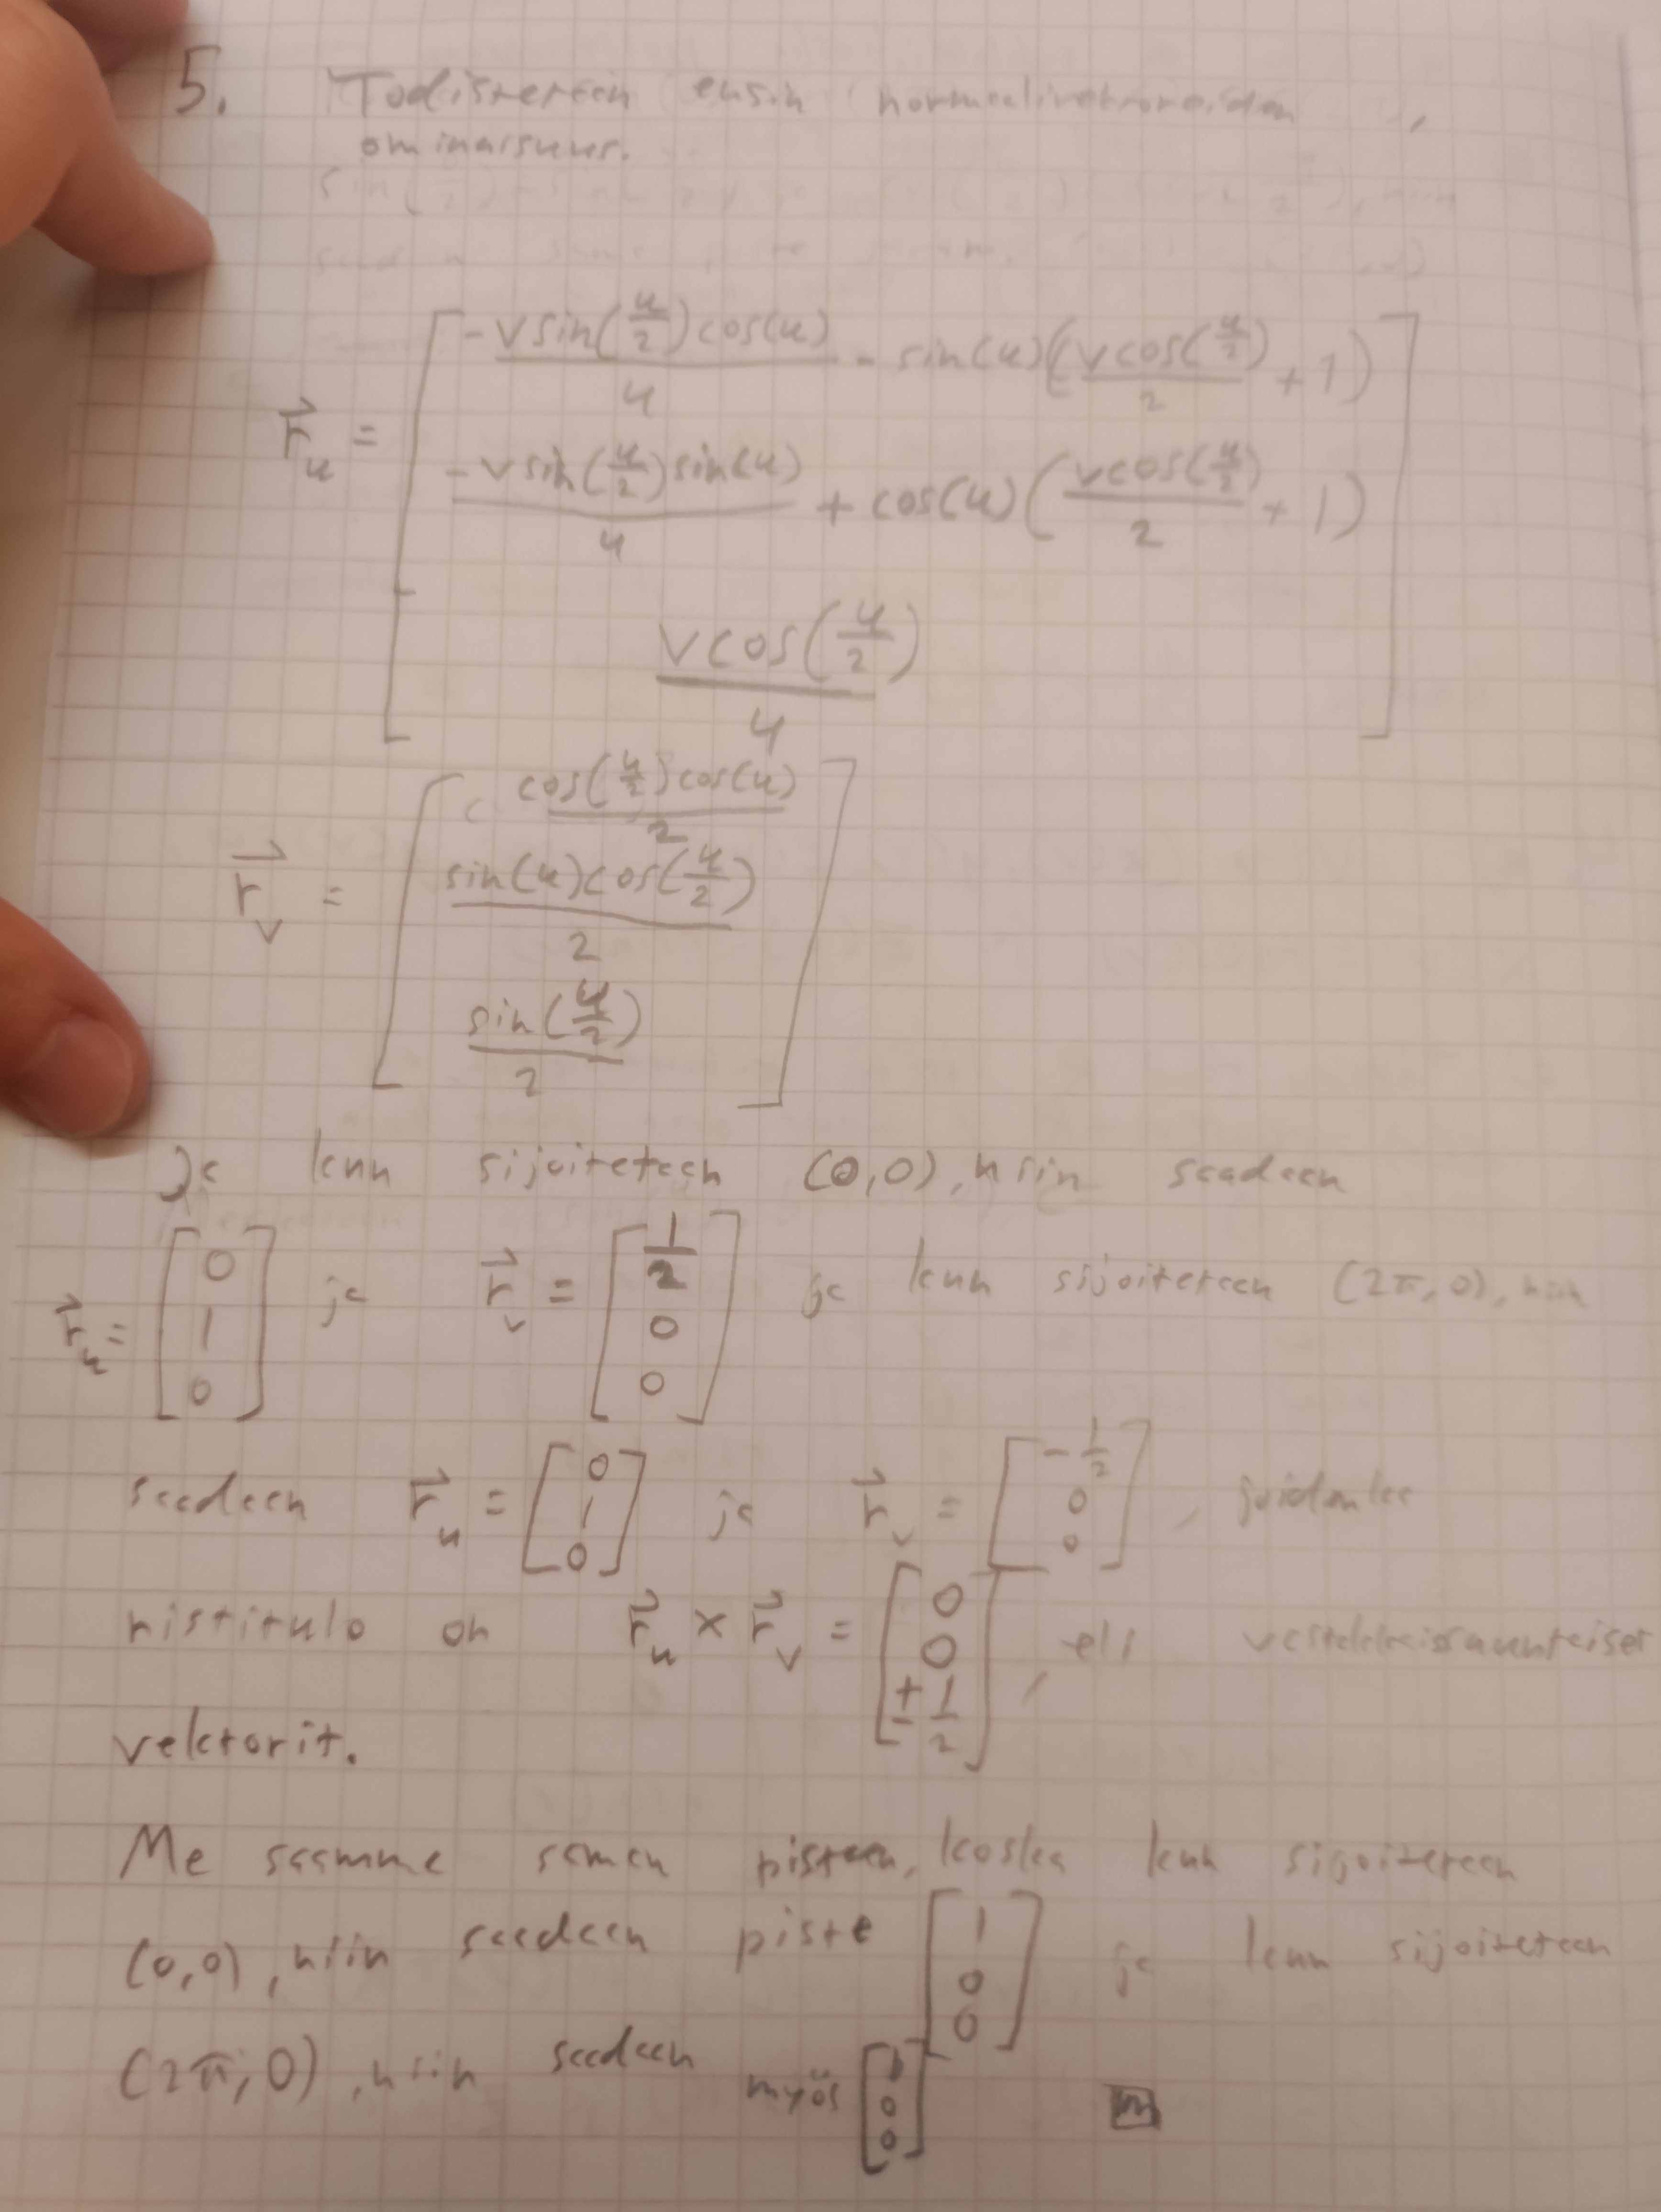 5. Todistetaan ensin normaalivektoreiden
ominaisuus.
r⃗_u = [ -v sin(u/2) cos(u) / 4 - sin(u)(v cos(u/2) / 2 + 1)
-v sin(u/2) sin(u) / 4 + cos(u)(v cos(u/2) / 2 + 1)
v cos(u/2) / 4 ]
r⃗_v = [ cos(u/2) cos(u) / 2
sin(u) cos(u/2) / 2
sin(u/2) / 2 ]
Ja kun sijoitetaan (0,0), niin saadaan
r⃗_u = [ 0 1 0 ] ja r⃗_v = [ 1/2 0 0 ] ja kun sijoitetaan (2π, 0), niin
saadaan r⃗_u = [ 0 1 0 ] ja r⃗_v = [ -1/2 0 0 ], joidenka
ristitulo on r⃗_u × r⃗_v = [ 0 0 ± 1/2 ], eli
vektorit.
Me saamme saman pisteen, koska kun sijoitetaan
(0,0), niin saadaan piste [ 1 0 0 ] ja kun sijoitetaan
(2π, 0), niin saadaan myös [ 1 0 0 ]